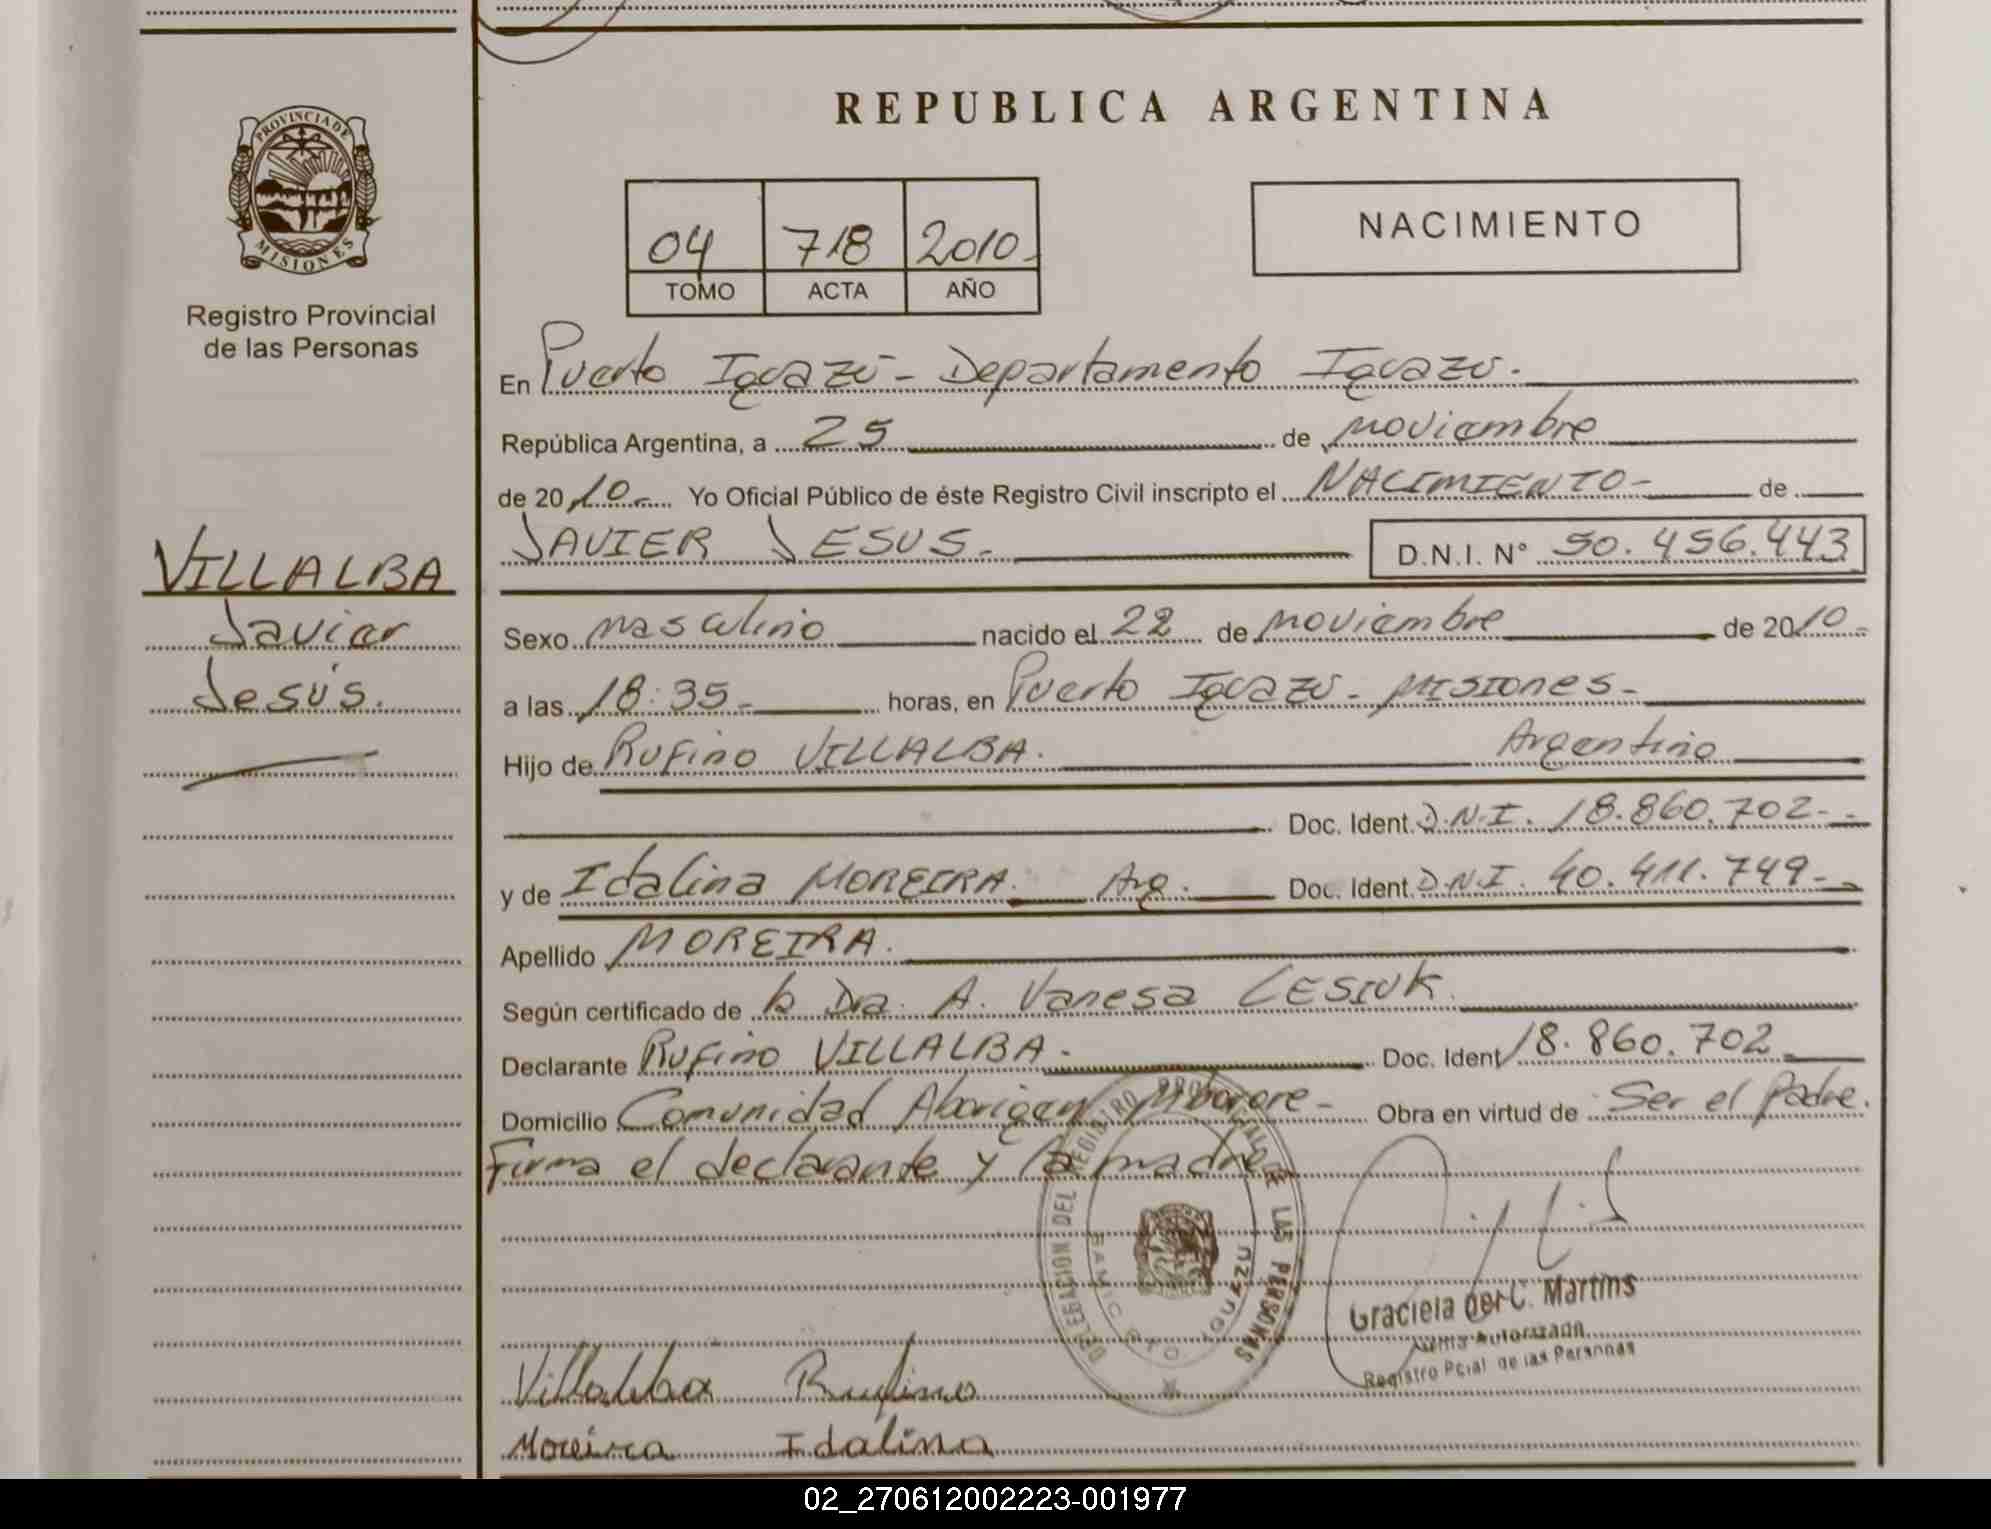 REPUBLICA ARGENTINA
PROVINCIA DE MISIONES
Registro Provincial
de las Personas
04 718 2010-
TOMO ACTA AÑO
NACIMIENTO
En Puerto Iguazú - Departamento Iguazú.
República Argentina, a 25 de noviembre
de 2010.- Yo Oficial Público de éste Registro Civil inscripto el NACIMIENTO- de
JAVIER JESUS.- D.N.I. N° 50.456.443
VILLALBA
Javier
Jesús.
Sexo masculino nacido el 22 de noviembre de 2010-
a las 18:35- horas, en Puerto Iguazú - MISIONES-
Hijo de Rufino VILLALBA. Argentino
Doc. Ident. D.N.I. 18.860.702-
y de Idalina MOREIRA. Arg. Doc. Ident. D.N.I. 40.411.749-
Apellido MOREIRA.
Según certificado de la Dra. A. Vanesa LESIUK.
Declarante Rufino VILLALBA.- Doc. Ident 18.860.702
Domicilio Comunidad Aborigen Mborore- Obra en virtud de Ser el Padre.
Firma el declarante y la madre
DELEGACION DEL REGISTRO PROVINCIAL DE LAS PERSONAS
IGUAZU
Graciela del C. Martins
Firma Autorizada
Registro Pcial. de las Personas
Villalba Rufino
Moreira Idalina
02_270612002223-001977